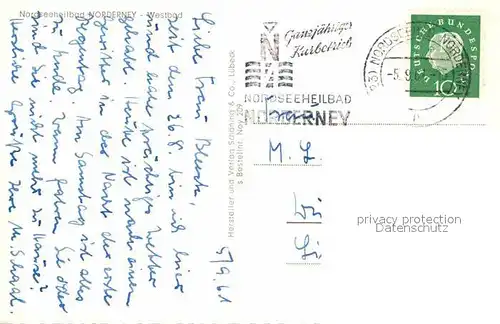 Nordseeheilbad NORDERNEY - Westbad
5/9.61
Liebe Frau Blück,
seit dem 26.8. bin ich hier
und habe prächtiges Wetter
gehabt. Heute ist nach einem
Gewitter in der Nacht der erste
Regentag. Am Samstag ist alles
zu Ende. Wann fahren Sie oder
sind Sie nicht mehr zu Hause?
Herzliche Grüße Ihre M. Schaal.
Hersteller und Verlag Schöning & Co., Lübeck
Bestellnr. Nor.
Ganzjähriger
Kurbetrieb
NORDSEEHEILBAD
NORDERNEY
NORDSEEHEILBAD NORDERNEY
-5.9.
DEUTSCHE BUNDESPOST
10
Frau
M. L.
privacy protection
Datenschutz